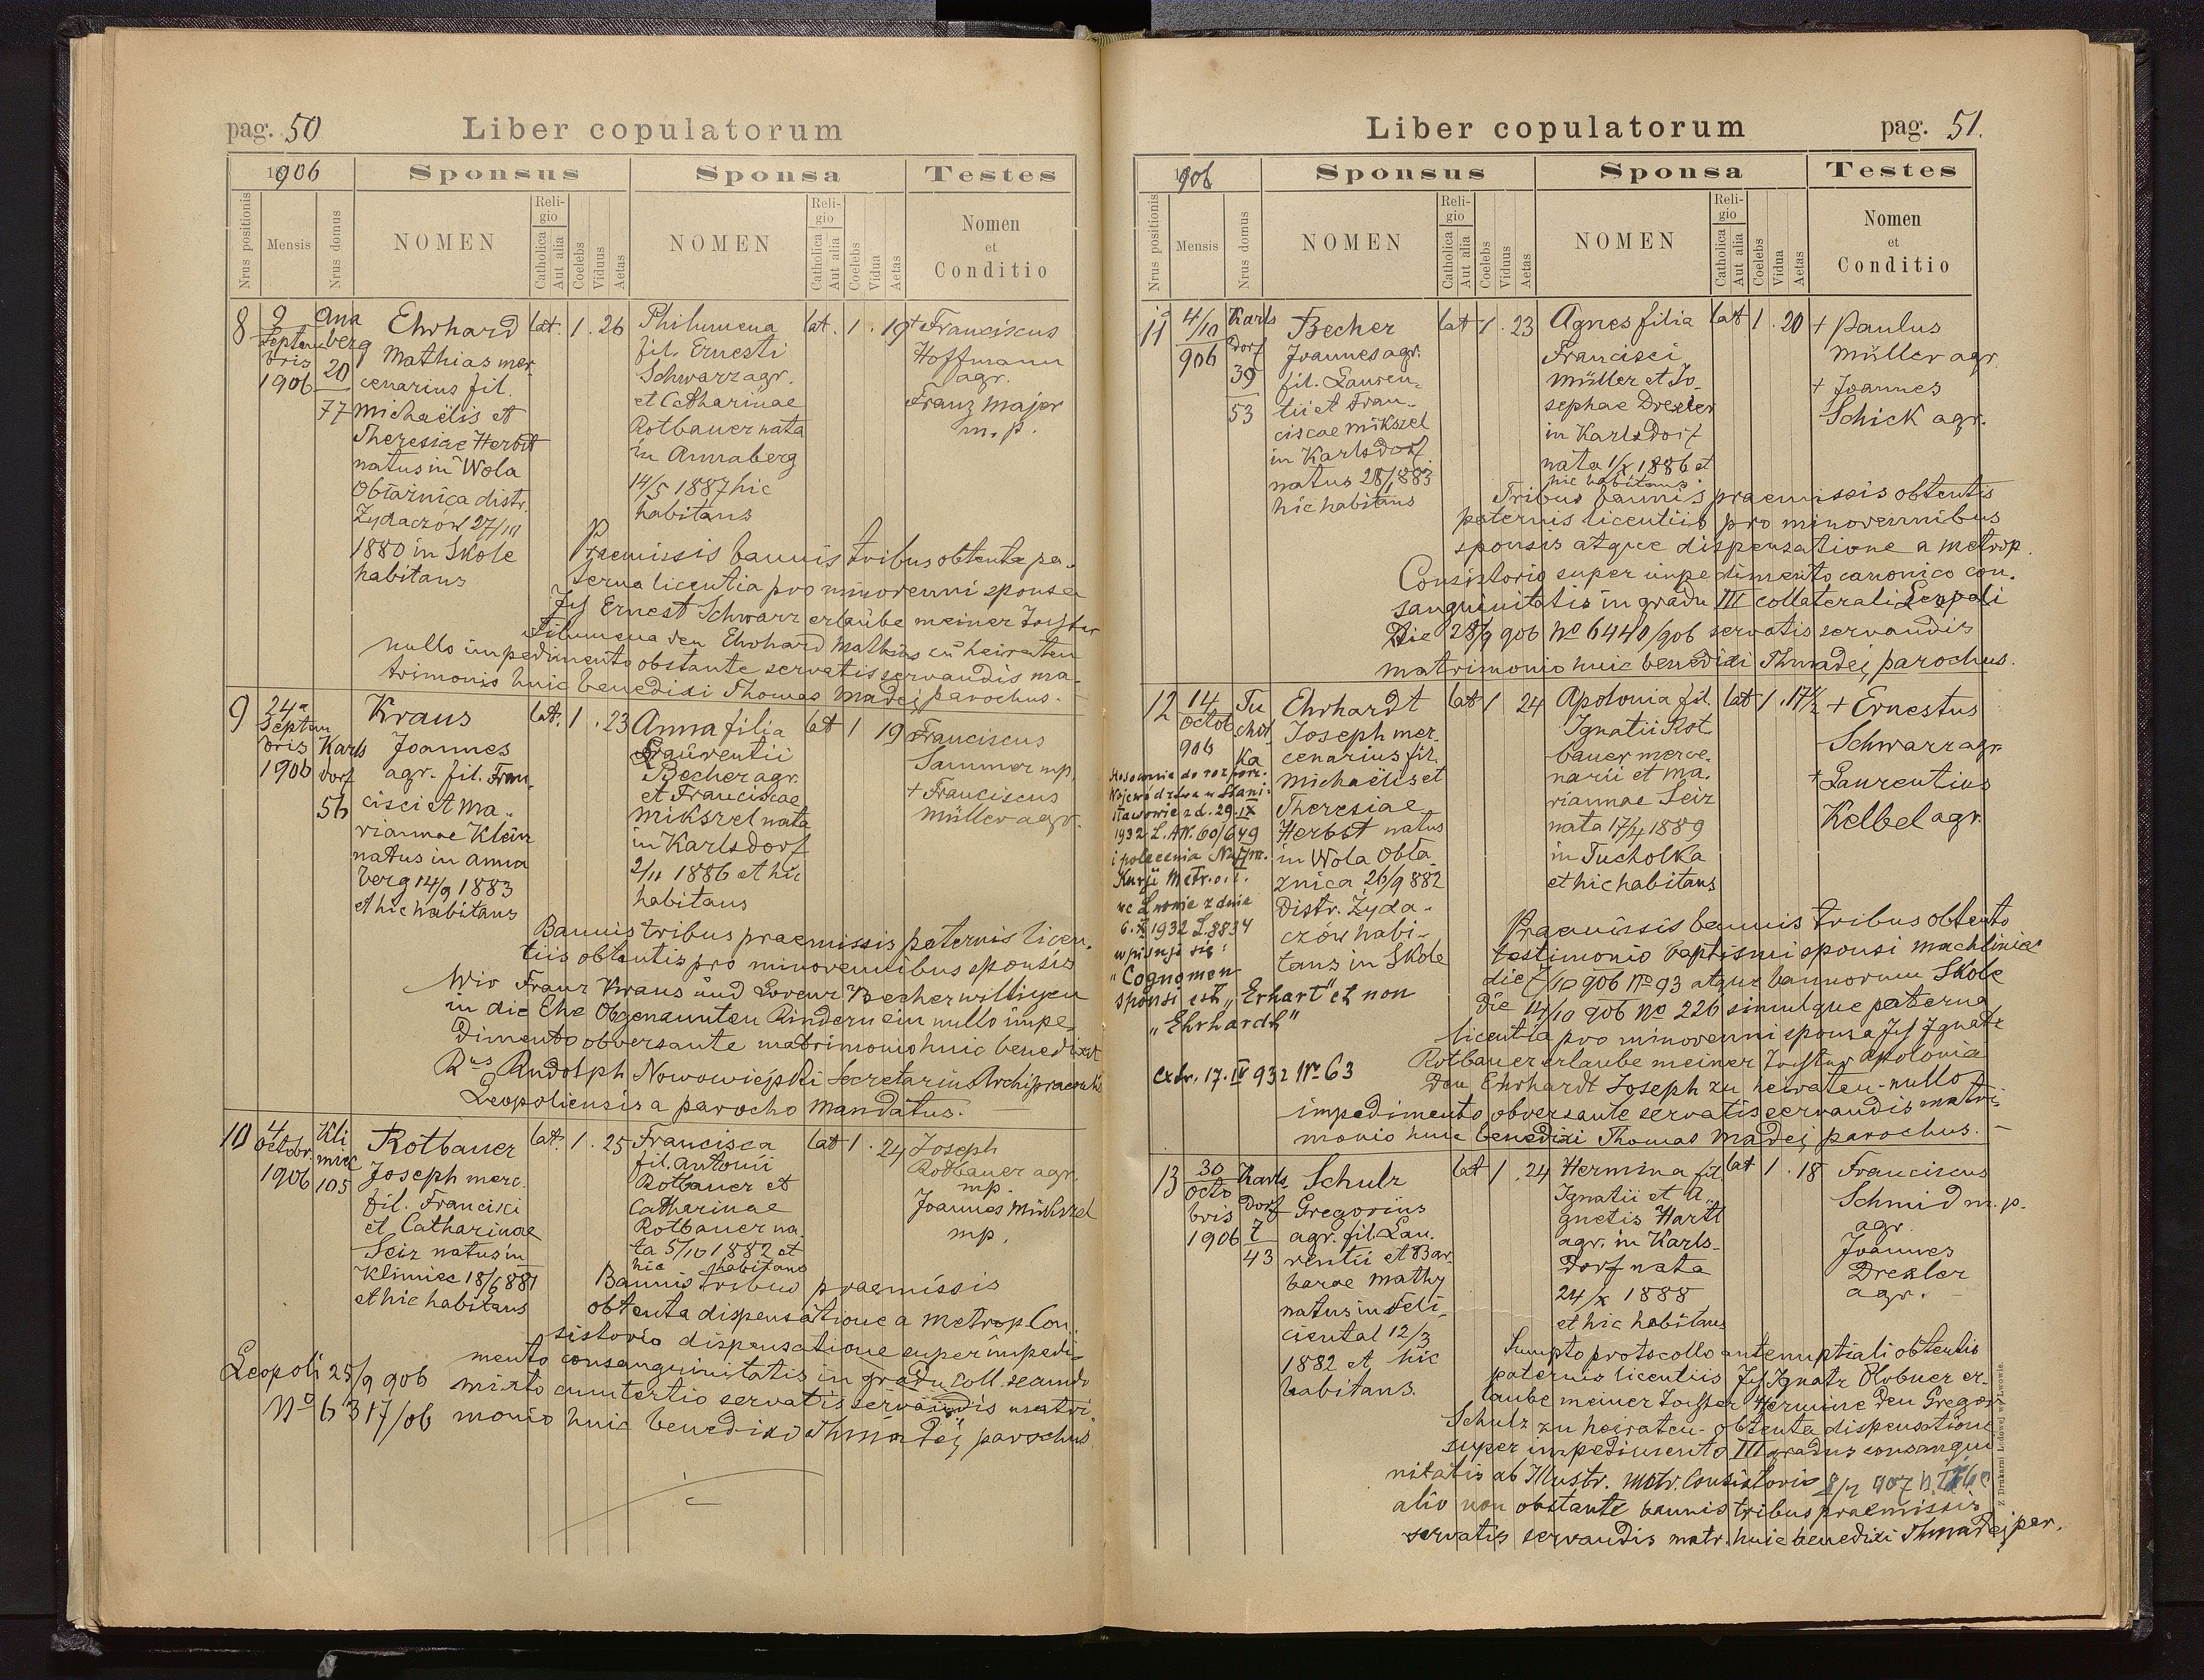 pag. 50
Liber copulatorum
1906
Sponsus
Sponsa
Testes
Nrus positionis
Mensis
Nrus domus
NOMEN
Religio
Catholica
Aut alia
Coelebs
Viduus
Aetas
NOMEN
Religio
Catholica
Aut alia
Coelebs
Vidua
Aetas
Nomen
et
Conditio
8
9
Septem
bris
1906
Ana
berg
20
77
Ehrhard
Mathias mer
cenarius fil.
Michaëlis et
Theresiae Herbst
natus in Wola
Obłaźnica distr.
Żydaczów 27/10
1880 in Skole
habitans
lat. 1 . 26
Philumena
fil. Ernesti
Schwarz agr.
et Catharinae
Rotbauer nata
in Annaberg
14/5 1887 hic
habitans
lat. 1 . 19
+ Franciscus
Hoffmann
agr.
Franz Majer
m. p.
Praemissis bannis tribus obtenta pa-
terna licentia pro minorenni sponsa
Ich Ernest Schwarz erlaube meiner Tochter
Filumena den Ehrhard Mathias zu heiraten
nullo impedimento obstante servatis servandis ma-
trimonio huic benedixi Thomas Madej parochus.
9
24a
Septem
bris
1906
Karls
dorf
56
Kraus
Joannes
agr. fil. Fran-
cisci et Ma-
riannae Klein
natus in Anna
berg 14/9 1883
et hic habitans
lat. 1 . 23
Anna filia
Laurentii
Becher agr.
et Franciscae
Mikszel nata
in Karlsdorf
2/11 1886 et hic
habitans
lat 1 19
Franciscus
Sammer mp.
+ Franciscus
Müller agr.
Bannis tribus praemissis paternis licen-
tiis obtentis pro minorennibus sponsis
Wir Franz Kraus und Lorenz Becher willigen
in die Ehe Obgenannten Kindern ein nullo impe-
dimento obversante matrimonio huic benedixit
Rus Rudolph Nowowiejski Secretarius Archipraesulis
Leopoliensis a parocho mandatus.
10
4
Octobr.
1906
Kli
miec
105
Rotbauer
Joseph merc.
fil. Francisci
et Catharinae
Seiz natus in
Klimiec 18/6 881
et hic habitans
lat. 1 . 25
Francisca
fil. Antonii
Rotbauer et
Catharinae
Rotbauer na
ta 5/10 1882 et
hic habitans
lat 1 . 24
Joseph
Rotbauer agr.
mp.
Joannes Mikszel
mp.
Bannis tribus praemissis
obtenta dispensatione a Metrop Con-
sistorio dispensatione super impedi-
mento consanguinitatis in gradu coll. secundo
mixto cum tertio servatis servandis matri-
monio huic benedixi Thmadej parochus
Leopoli 25/9 906
No 6317/06
Liber copulatorum
pag. 51.
1906
Sponsus
Sponsa
Testes
Nrus positionis
Mensis
Nrus domus
NOMEN
Religio
Catholica
Aut alia
Coelebs
Viduus
Aetas
NOMEN
Religio
Catholica
Aut alia
Coelebs
Vidua
Aetas
Nomen
et
Conditio
11
4/10
906
Karls
dorf
39
53
Becher
Joannes agr.
fil. Lauren-
tii et Fran-
ciscae Mikszel
in Karlsdorf
natus 28/1 883
hic habitans
lat 1 . 23
Agnes filia
Francisci
Müller et Jo-
sephae Drexler
in Karlsdorf
nata 1/x 1886 et
hic habitans
lat 1 . 20
+ Paulus
Müller agr
+ Joannes
Schick agr.
Tribus bannis praemissis obtentis
paternis licentiis pro minorennibus
sponsis atque dispensatione a metrop.
Consistorio super impedimento canonico con-
sanguinitatis in gradu III collaterali Leopoli
Die 28/9 906 No 6440/906 servatis servandis
matrimonio huic benedixi Thmadej parochus.
12
14
Octob
906
Tu
chol
ka
Ehrhardt
Joseph mer-
cenarius fil.
Michaëlis et
Theresiae
Herbst natus
in Wola Obła
źnica 26/9 882
Distr. Żyda-
czów habi-
tans in Skole
lat 1 24
Apolonia fil.
Ignatii Rot-
bauer merce-
narii et Ma-
riannae Seiz
nata 17/4 1889
in Tucholka
et hic habitans
lat 1 . 17½
+ Ernestus
Schwarz agr.
+ Laurentius
Kelbel agr.
Stosownie do rozporz.
Województwa w Stani-
sławowie z d. 29.IX
1932 L. AW. 60/649
i polecenia
Kurji Metr. o. ł.
we Lwowie z dnia
6.X 1932 L. 8834
wpisuje się:
"Cognomen
sponsi est "Erhart" et non
"Ehrhardt"
extr. 17. IV 932 No 63
Praemissis bannis tribus obtento
testimonio baptismi sponsi Machliniec
die 7/10 906 No 93 atque bannorum Skole
die 14/10 906 No 226 simulque paterna
licentia pro minorenni sponsa Ich Ignatz
Rotbauer erlaube meiner Tochter Apolonia
den Ehrhardt Joseph zu heiraten - nullo
impedimento obversante servatis servandis matri-
monio huic benedixi Thomas Madej parochus.
13
30
Octo
bris
1906
Karls
dorf
7
43
Schulz
Gregorius
agr. fil. Lau-
rentii et Bar-
barae Mathy
natus in Feli-
ciental 12/3
1882 et hic
habitans.
lat 1 . 24
Hermina fil.
Ignatii et A-
gnetis Hartl
agr. in Karls-
dorf nata
24/x 1888
et hic habitans
lat 1 . 18
Franciscus
Schmid m. p.
agr.
Joannes
Drexler
agr.
Sumpto protocollo antenuptiali obtentis
paternis licentiis Ich Ignatz Hobner er-
laube meiner Tochter Hermine den Gregor
Schulz zu heiraten - obtenta dispensatione
super impedimento III gradus consangui
nitatis ab Illustr. Metr. Consistorio
alio non obstante bannis tribus praemissis
servatis servandis matr. huic benedixi Thmadej par.
Z Drukarni Ludowej we Lwowie.